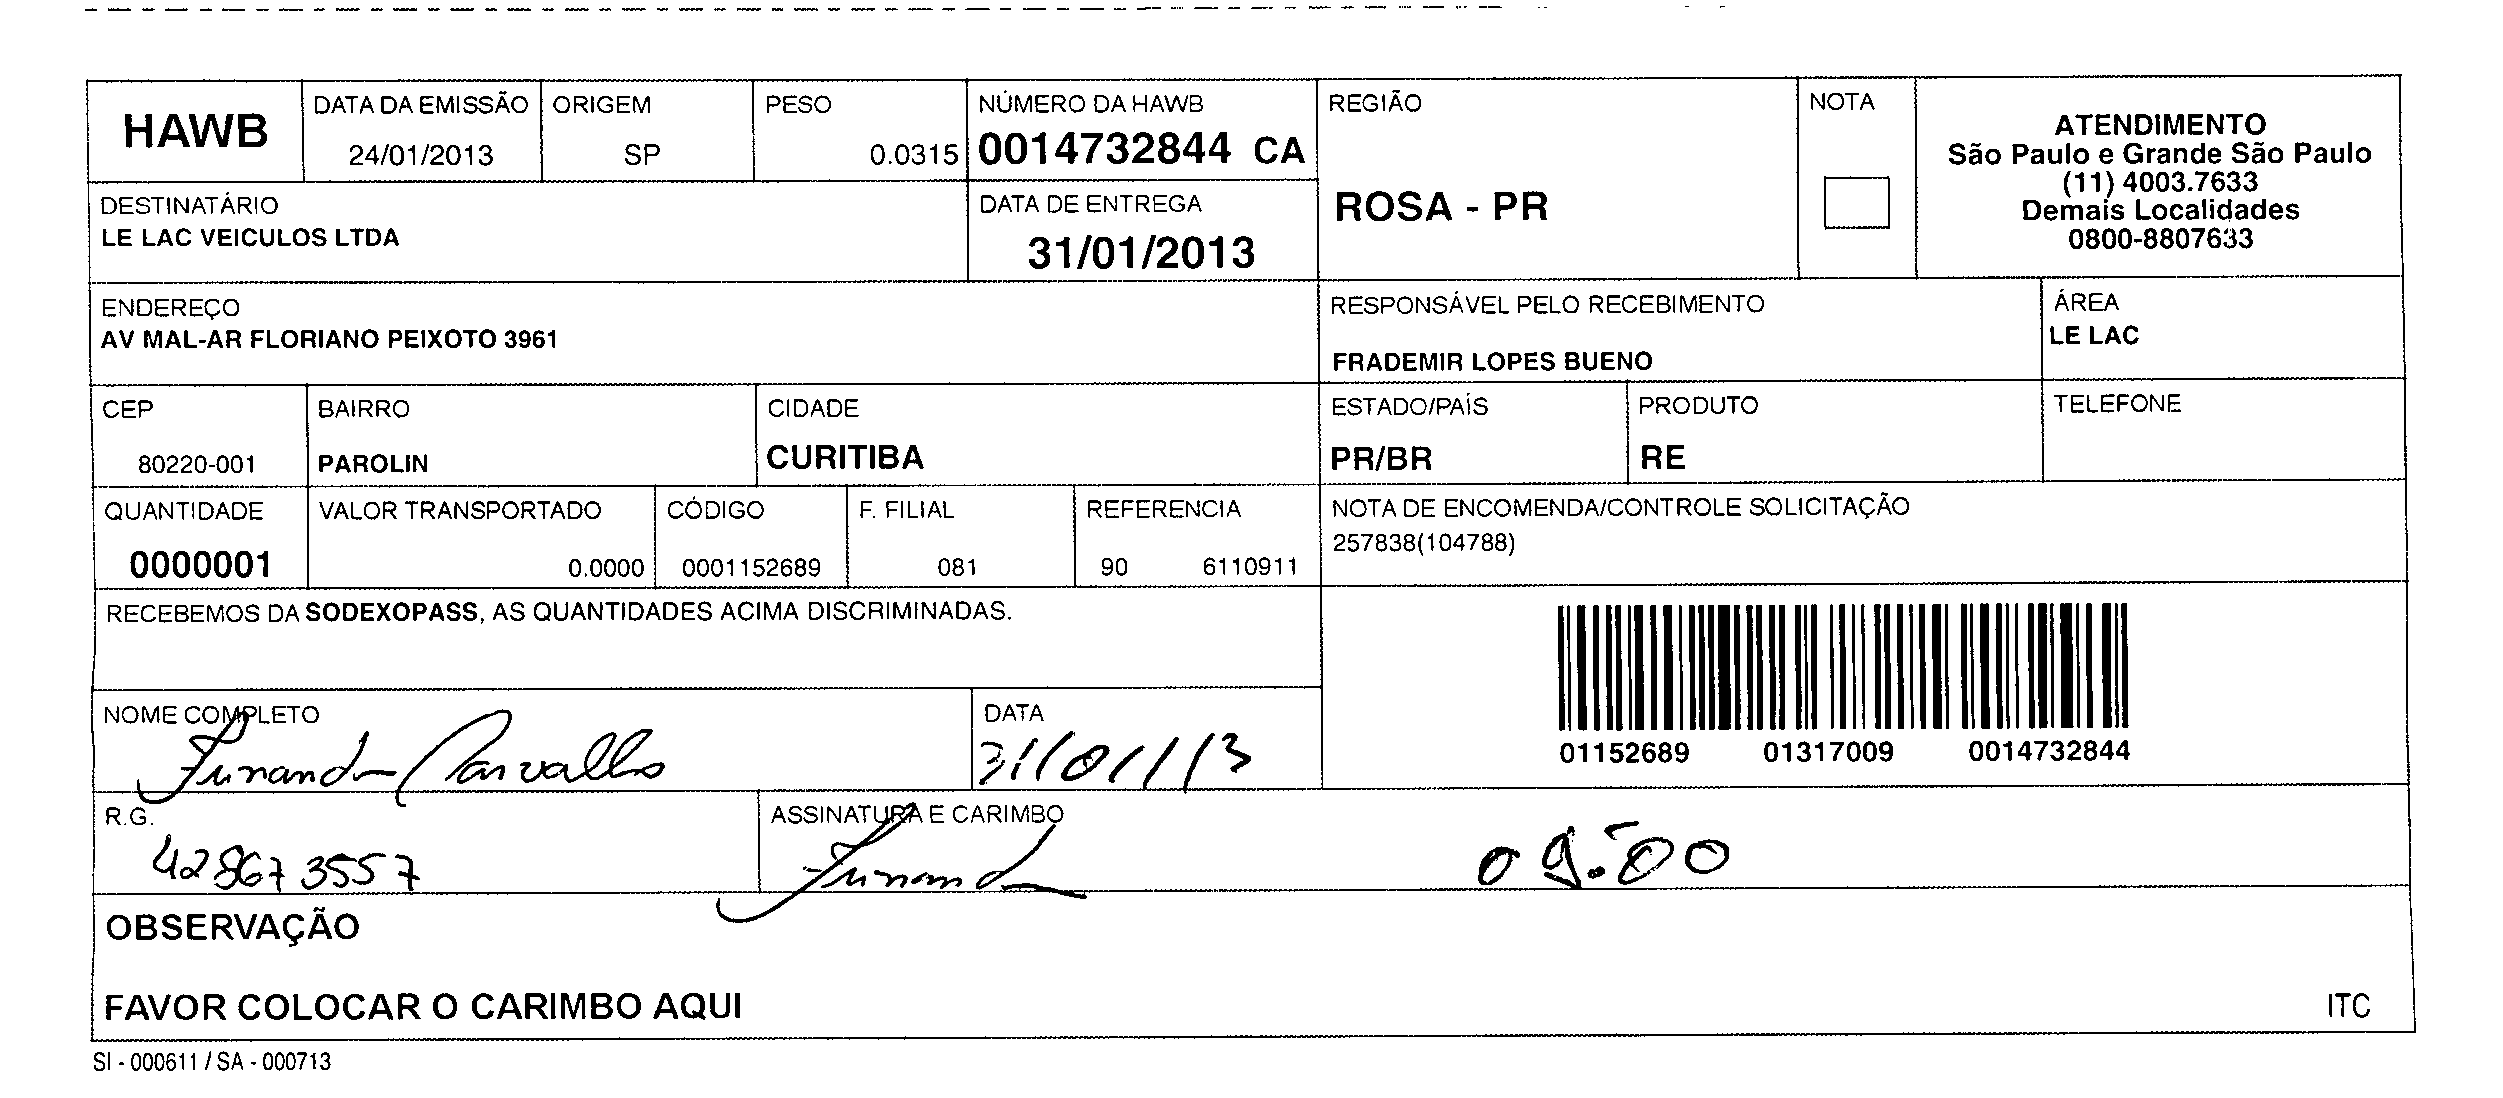 HAWB
DATA DA EMISSÃO
24/01/2013
ORIGEM
SP
PESO
0.0315
NÚMERO DA HAWB
0014732844 CA
REGIÃO
ROSA - PR
NOTA
ATENDIMENTO
São Paulo e Grande São Paulo
(11) 4003.7633
Demais Localidades
0800-8807633
DESTINATÁRIO
LE LAC VEICULOS LTDA
DATA DE ENTREGA
31/01/2013
ENDEREÇO
AV MAL-AR FLORIANO PEIXOTO 3961
RESPONSÁVEL PELO RECEBIMENTO
FRADEMIR LOPES BUENO
ÁREA
LE LAC
CEP
80220-001
BAIRRO
PAROLIN
CIDADE
CURITIBA
ESTADO/PAÍS
PR/BR
PRODUTO
RE
TELEFONE
QUANTIDADE
0000001
VALOR TRANSPORTADO
0.0000
CÓDIGO
0001152689
F. FILIAL
081
REFERENCIA
90 6110911
NOTA DE ENCOMENDA/CONTROLE SOLICITAÇÃO
257838(104788)
RECEBEMOS DA SODEXOPASS, AS QUANTIDADES ACIMA DISCRIMINADAS.
01152689 01317009 0014732844
NOME COMPLETO
Carvalho
DATA
31/01/13
R.G.
428673557
ASSINATURA E CARIMBO
09:00
OBSERVAÇÃO
FAVOR COLOCAR O CARIMBO AQUI
ITC
SI - 000611 / SA - 000713